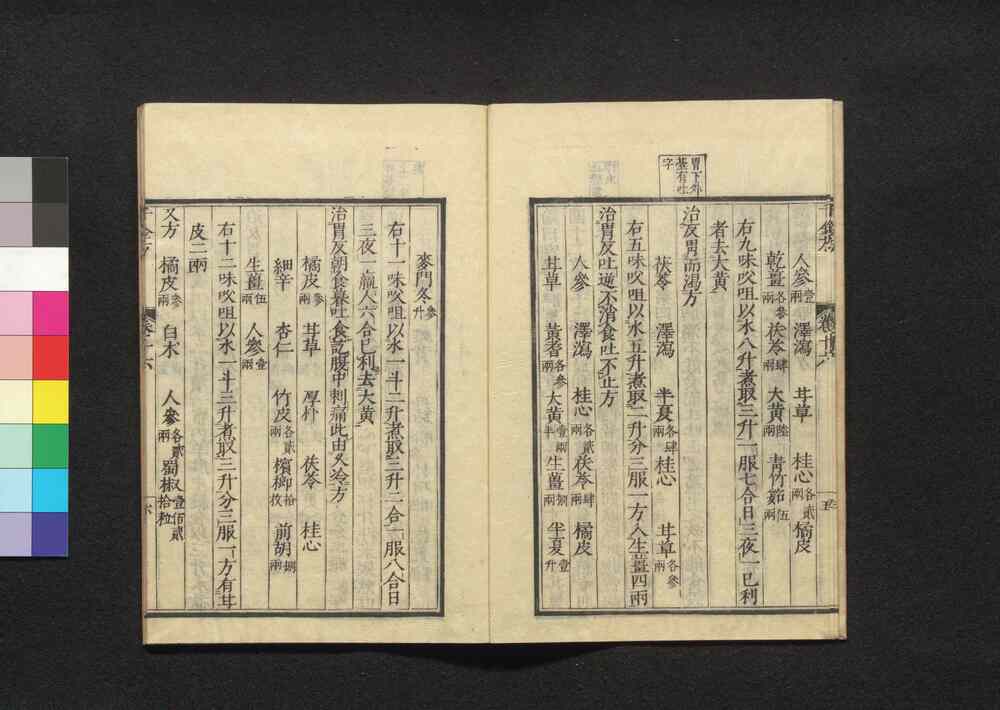 胃下外
臺有吐
字
人參壹兩 澤瀉 甘草 桂心各貳兩 橘皮
乾薑各參兩 茯苓肆兩 大黃陸兩 青竹茹伍兩
右九味㕮咀以水八升煮取三升一服七合日三夜一已利
者去大黃
治反胃而渴方
茯苓 澤瀉 半夏各肆兩 桂心 甘草各參兩
右五味㕮咀以水五升煮取二升分三服一方入生薑四兩
治胃反吐逆不消食吐不止方
人參 澤瀉 桂心各貳兩 茯苓肆兩 橘皮
甘草 黃耆各參兩 大黃壹兩半 生薑捌兩 半夏壹升
麥門冬參升
右十一味㕮咀以水一斗二升煮取三升二合一服八合日
三夜一羸人六合已利去大黃
治胃反朝食暮吐食訖腹中刺痛此由久冷方
橘皮參兩 甘草 厚朴 茯苓 桂心
細辛 杏仁 竹皮各貳兩 檳榔拾枚 前胡捌兩
生薑伍兩 人參壹兩
右十二味㕮咀以水一斗三升煮取三升分三服一方有甘
皮二兩
又方 橘皮參兩 白朮 人參各貳兩 蜀椒壹佰貳拾粒